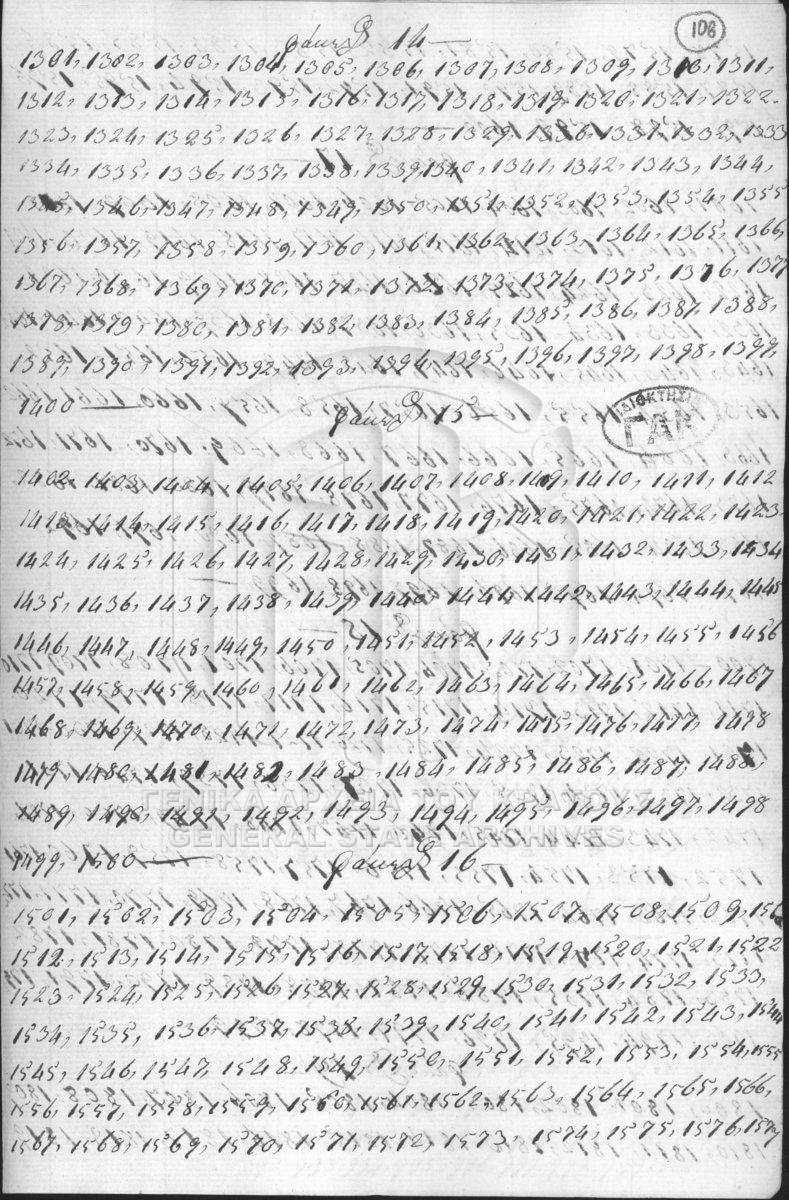 108
φάκελ 14 —
1301, 1302, 1303, 1304, 1305, 1306, 1307, 1308, 1309, 1310, 1311,
1312, 1313, 1314, 1315, 1316, 1317, 1318, 1319, 1320, 1321, 1322.
1323, 1324, 1325, 1326, 1327, 1328, 1329, 1330, 1331, 1332, 1333
1334, 1335, 1336, 1337, 1338, 1339, 1340, 1341, 1342, 1343, 1344,
1345, 1346, 1347, 1348, 1349, 1350, 1351, 1352, 1353, 1354, 1355
1356, 1357, 1358, 1359, 1360, 1361, 1362, 1363, 1364, 1365, 1366,
1367, 1368, 1369, 1370, 1371, 1372, 1373, 1374, 1375, 1376, 1377
1378, 1379, 1380, 1381, 1382, 1383, 1384, 1385, 1386, 1387, 1388,
1389, 1390, 1391, 1392, 1393, 1394, 1395, 1396, 1397, 1398, 1399,
1400 —
φάκελ 15 —
ΙΔΙΟΚΤΗΣΙΑ
ΓΑΚ
1402, 1403, 1404, 1405, 1406, 1407, 1408, 1409, 1410, 1411, 1412
1413, 1414, 1415, 1416, 1417, 1418, 1419, 1420, 1421, 1422, 1423
1424, 1425, 1426, 1427, 1428, 1429, 1430, 1431, 1432, 1433, 1434
1435, 1436, 1437, 1438, 1439, 1440, 1441, 1442, 1443, 1444, 1445
1446, 1447, 1448, 1449, 1450, 1451, 1452, 1453, 1454, 1455, 1456
1457, 1458, 1459, 1460, 1461, 1462, 1463, 1464, 1465, 1466, 1467
1468, 1469, 1470, 1471, 1472, 1473, 1474, 1475, 1476, 1477, 1478
1479, 1480, 1481, 1482, 1483, 1484, 1485, 1486, 1487, 1488,
1489, 1490, 1491, 1492, 1493, 1494, 1495, 1496, 1497, 1498
ΓΕΝΙΚΑ ΑΡΧΕΙΑ ΤΟΥ ΚΡΑΤΟΥΣ
GENERAL STATE ARCHIVES
1499, 1500 —
φάκελ 16 —
1501, 1502, 1503, 1504, 1505, 1506, 1507, 1508, 1509,
1512, 1513, 1514, 1515, 1516, 1517, 1518, 1519, 1520, 1521, 1522
1523, 1524, 1525, 1526, 1527, 1528, 1529, 1530, 1531, 1532, 1533,
1534, 1535, 1536, 1537, 1538, 1539, 1540, 1541, 1542, 1543, 1544
1545, 1546, 1547, 1548, 1549, 1550, 1551, 1552, 1553, 1554, 1555
1556, 1557, 1558, 1559, 1560, 1561, 1562, 1563, 1564, 1565, 1566,
1567, 1568, 1569, 1570, 1571, 1572, 1573, 1574, 1575, 1576, 1577